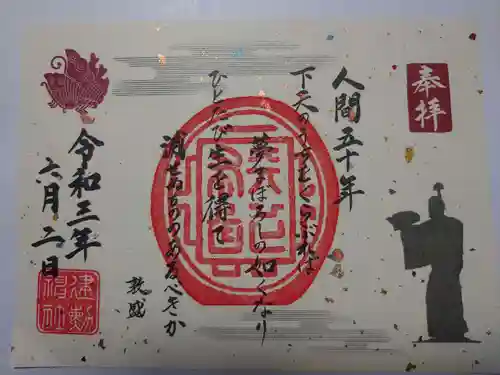 奉拝
人間五十年
下天のうちをくらぶれば
夢まぼろしの如くなり
ひとたび生を得て
滅せぬものゝあるべきか
敦盛
令和三年
六月二日
建勲神社